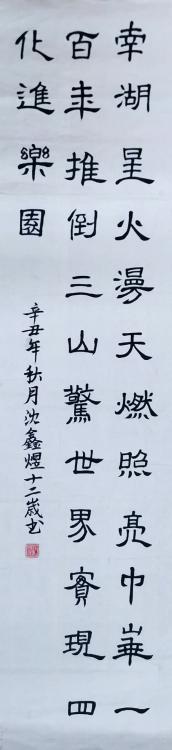 南湖星火漫天燃照亮中華一
百年推倒三山驚世界實現四
化進樂園
辛丑年秋月沈鑫煜十二歲书